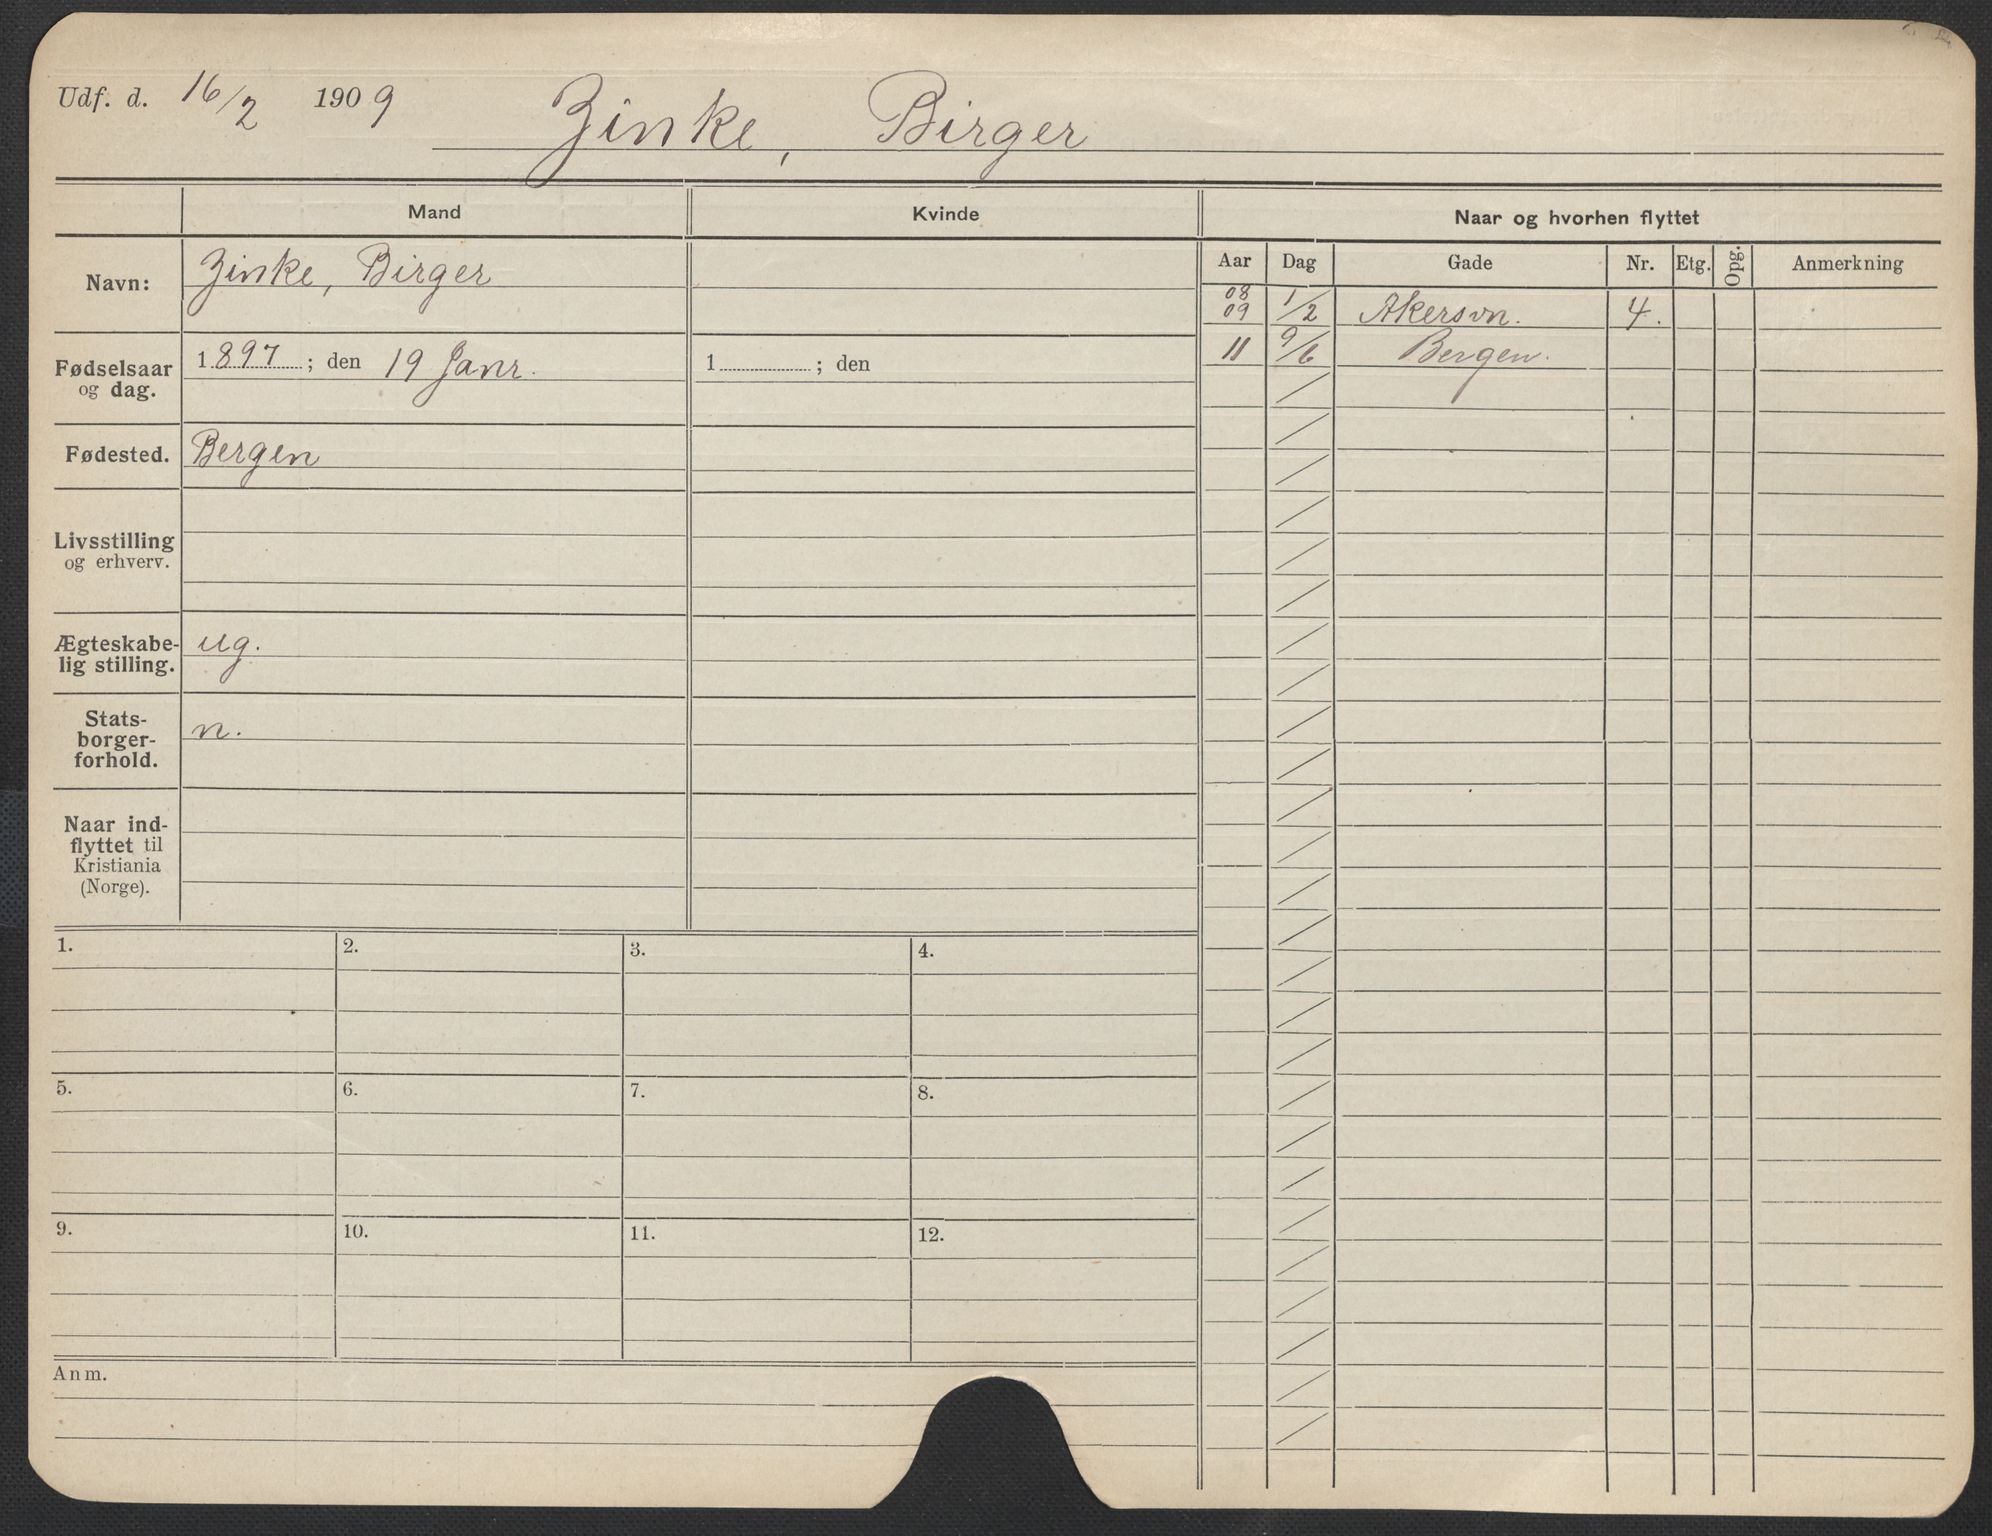 Udf. d. 16/2 1909 Zinke, Birger
Mand Kvinde Naar og hvorhen flyttet
Aar Dag Gade Nr. Etg. Opg. Anmerkning
Navn: Zinke, Birger
08
09 1/2 Akersvn. 4.
11 9/6 Bergen.
Fødselsaar
og dag.
1897; den 19 Janr. 1 ; den
Fødested. Bergen
Livsstilling
og erhverv.
Ægteskabe-
lig stilling.
ug.
Stats-
borger-
forhold.
n.
Naar ind-
flyttet til
Kristiania
(Norge).
1. 2. 3. 4.
5. 6. 7. 8.
9. 10. 11. 12.
Anm.